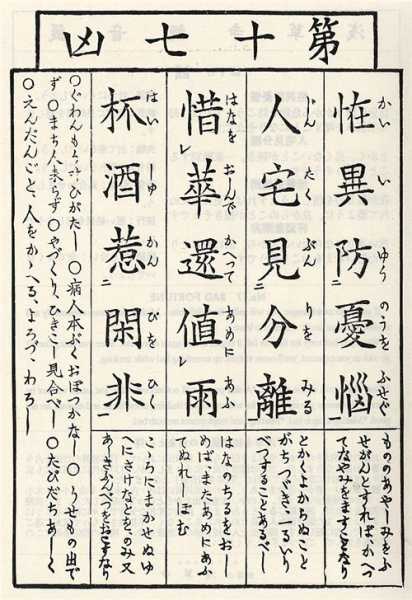 第十七凶
恠異防二憂悩一
かい い ゆう のうを ふせぐ
もののあやしみをふ
せがんとすればかへつ
てなやみをますことなり
人宅見二分離一
じん たく ぶん りを みる
とかくよからぬこと
がちつゞき、一るいり
べつすることあるべし
惜レ華還値レ雨
はなを おしんで かへって あめに あふ
はなのちるをおし
めば、またあめにあふ
てぬれしぼむ
杯酒惹二閑非一
はい しゆ かん ひを ひく
こゝろにまかせぬゆ
へにさけなどを、のみ又
あしきふんべつをおこすなり
○ぐわんもうかなひがたし ○病人本ぶくおぼつかなし ○うせもの出で
ず ○まち人来らず ○やづくり、ひきこし見合べし ○たびだちあしく
○えんだんごと、人をかゝへる、よろづ、わろし